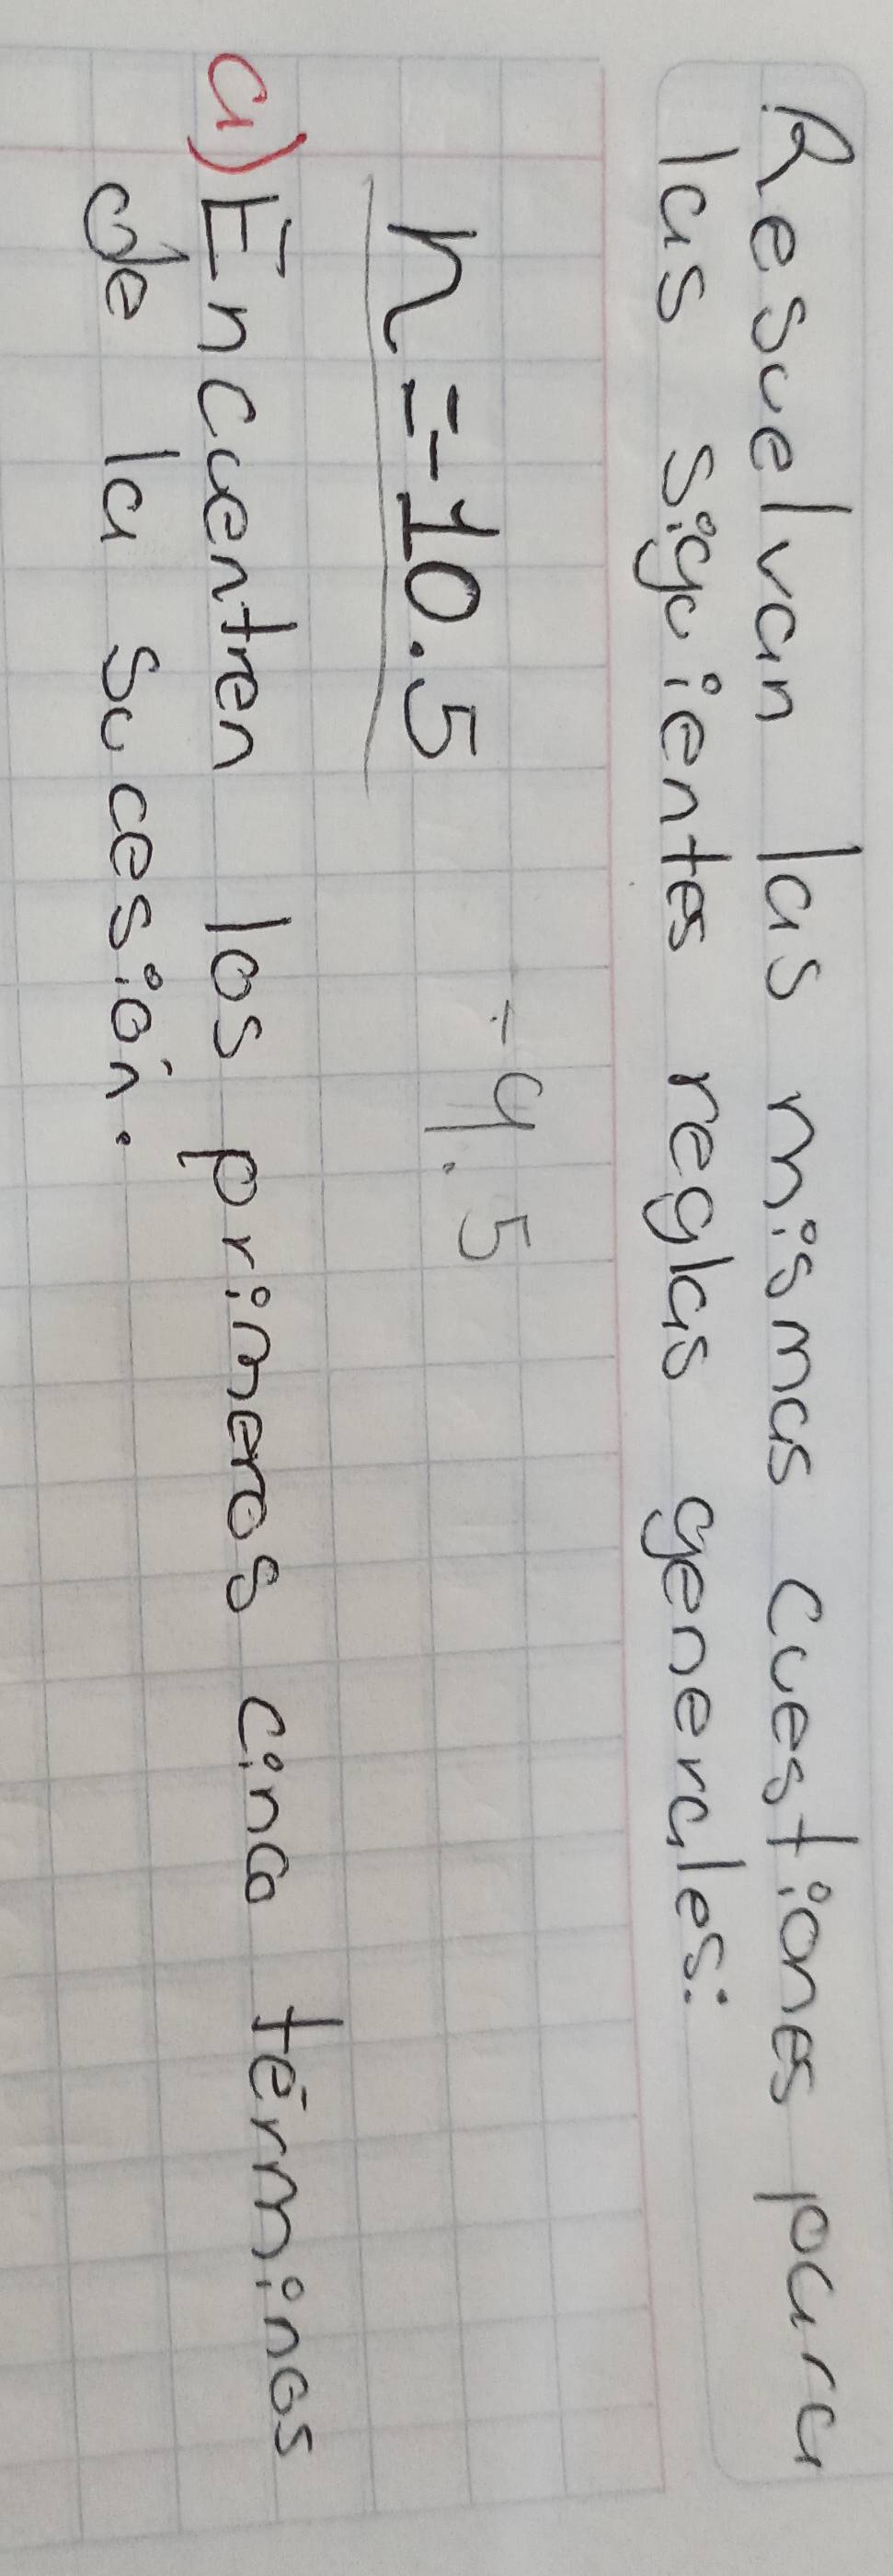 Resuelvan las mismas cuestiones para
las siguientes reglas generales:
-4.5
n=-10.5
a) Encuentren los primeros cinco términos
de la sucesión.